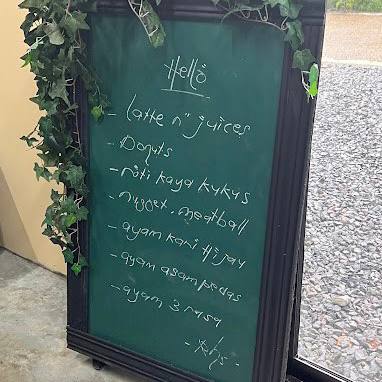 Hello
- Latte n" juices
- Donuts
- roti kaya kukus
- nugget. meatball
- ayam kari Hijau
- ayam asam pedas
- ayam 3 rasa